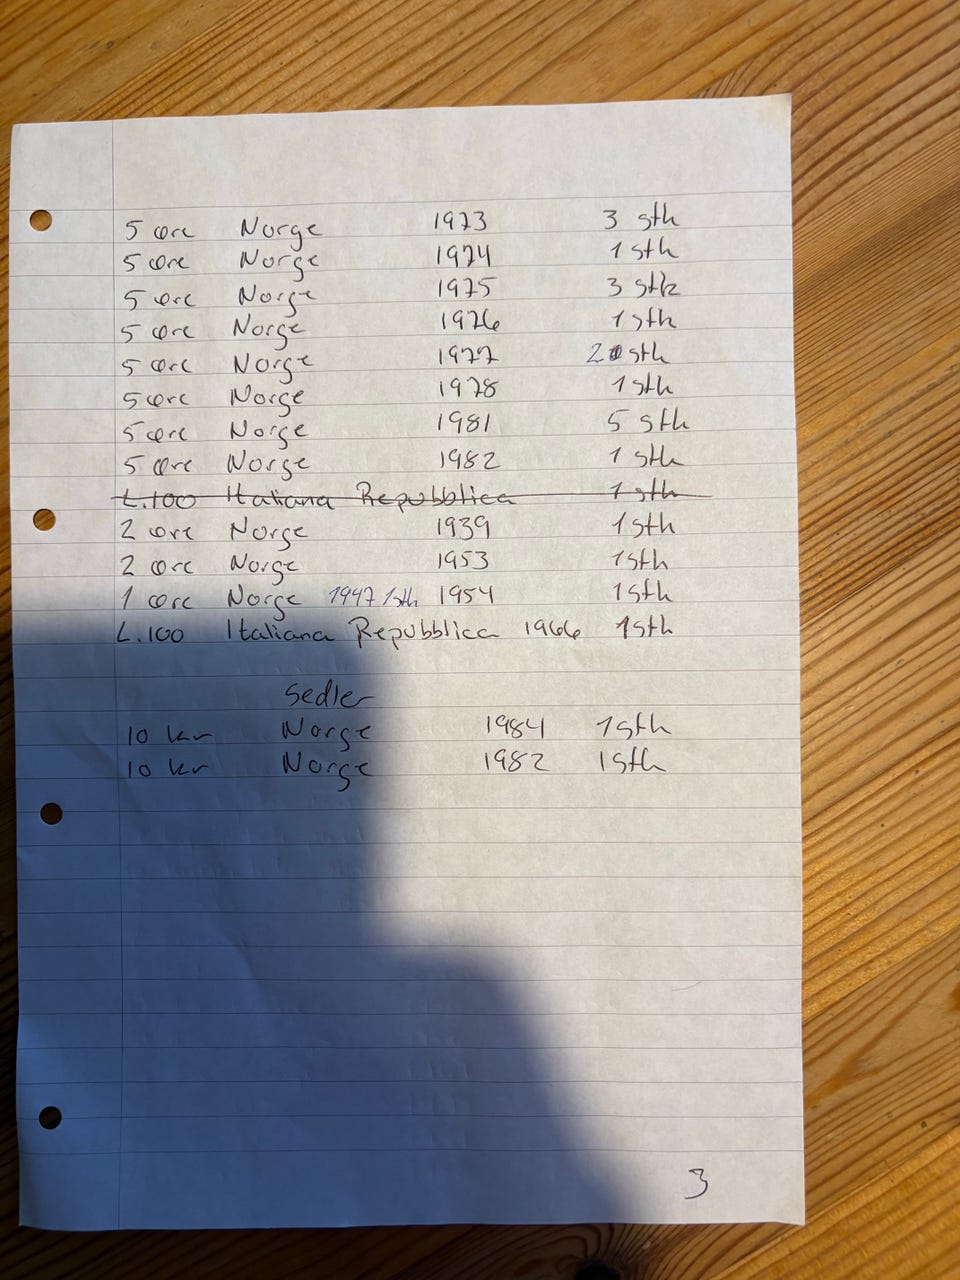 5 øre Norge 1973 3 stk
5 øre Norge 1974 1 stk
5 øre Norge 1975 3 stk
5 øre Norge 1976 1 stk
5 øre Norge 1977 2 stk
5 øre Norge 1978 1 stk
5 øre Norge 1981 5 stk
5 øre Norge 1982 1 stk
L.100 Italiana Repubblica 1 stk
2 øre Norge 1939 1 stk
2 øre Norge 1953 1 stk
1 øre Norge 1947 1stk 1954 1 stk
L.100 Italiana Repubblica 1966 1 stk
Sedler
10 kr Norge 1984 1 stk
10 kr Norge 1982 1 stk
3